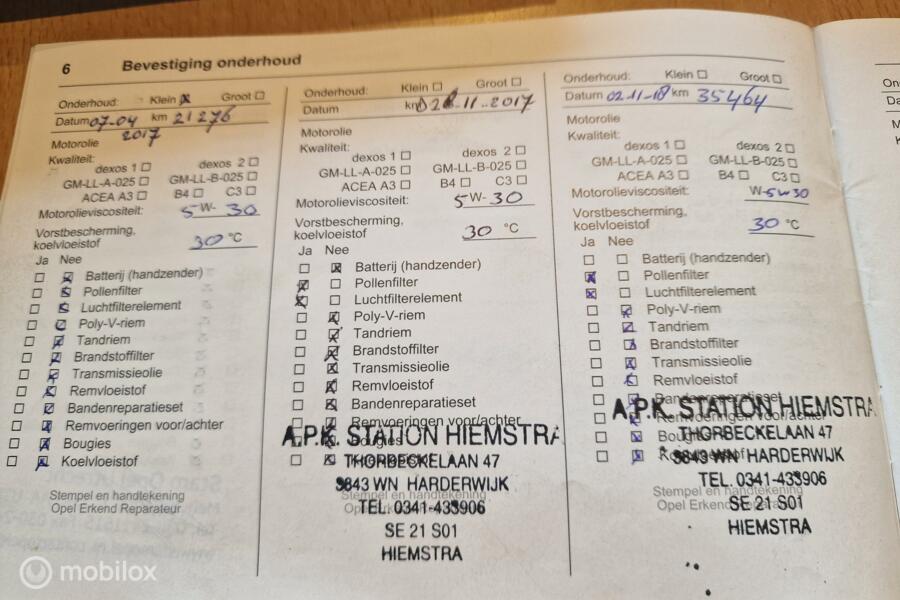 6 Bevestiging onderhoud
Onderhoud: Klein Groot
Datum 07-04 km 21276
2017
Motorolie
Kwaliteit:
dexos 1 dexos 2
GM-LL-A-025 GM-LL-B-025
ACEA A3 B4 C3
Motorolieviscositeit: 5 W- 30
Vorstbescherming,
koelvloeistof 30 °C
Ja Nee
Batterij (handzender)
Pollenfilter
Luchtfilterelement
Poly-V-riem
Tandriem
Brandstoffilter
Transmissieolie
Remvloeistof
Bandenreparatieset
Remvoeringen voor/achter
Bougies
Koelvloeistof
Stempel en handtekening
Opel Erkend Reparateur
Onderhoud: Klein Groot
Datum km 11-2017
Motorolie
Kwaliteit:
dexos 1 dexos 2
GM-LL-A-025 GM-LL-B-025
ACEA A3 B4 C3
Motorolieviscositeit: 5 W- 30
Vorstbescherming,
koelvloeistof 30 °C
Ja Nee
Batterij (handzender)
Pollenfilter
Luchtfilterelement
Poly-V-riem
Tandriem
Brandstoffilter
Transmissieolie
Remvloeistof
Bandenreparatieset
Remvoeringen voor/achter
Bougies
A.P.K. STATION HIEMSTRA
THORBECKELAAN 47
3843 WN HARDERWIJK
Stempel en handtekening
TEL. 0341-433906
Opel Erkend
SE 21 S01
HIEMSTRA
Onderhoud: Klein Groot
Datum 02-11-18 km 35464
Motorolie
Kwaliteit:
dexos 1 dexos 2
GM-LL-A-025 GM-LL-B-025
ACEA A3 B4 C3
Motorolieviscositeit: W-5w30
Vorstbescherming,
koelvloeistof 30 °C
Ja Nee
Batterij (handzender)
Pollenfilter
Luchtfilterelement
Poly-V-riem
Tandriem
Brandstoffilter
Transmissieolie
Remvloeistof
Bandenreparatieset
A.P.K. STATION HIEMSTRA
Remvoeringen voor/achter
THORBECKELAAN 47
3843 WN HARDERWIJK
TEL. 0341-433906
Stempel en handtekening
SE 21 S01
Opel Erkend
HIEMSTRA
mobilox